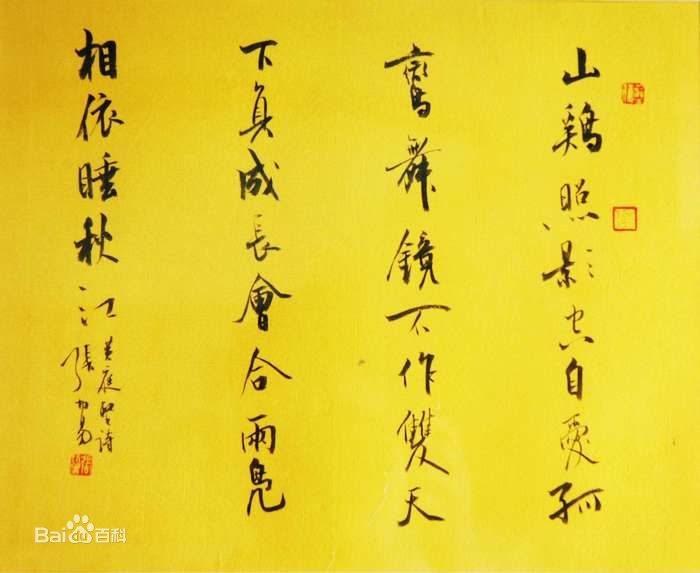 山鷄照影空自愛孤
鸞舞鏡不作雙天
下真成長會合兩鳧
相依睡秋江
黃庭堅詩
張
Bai du 百科